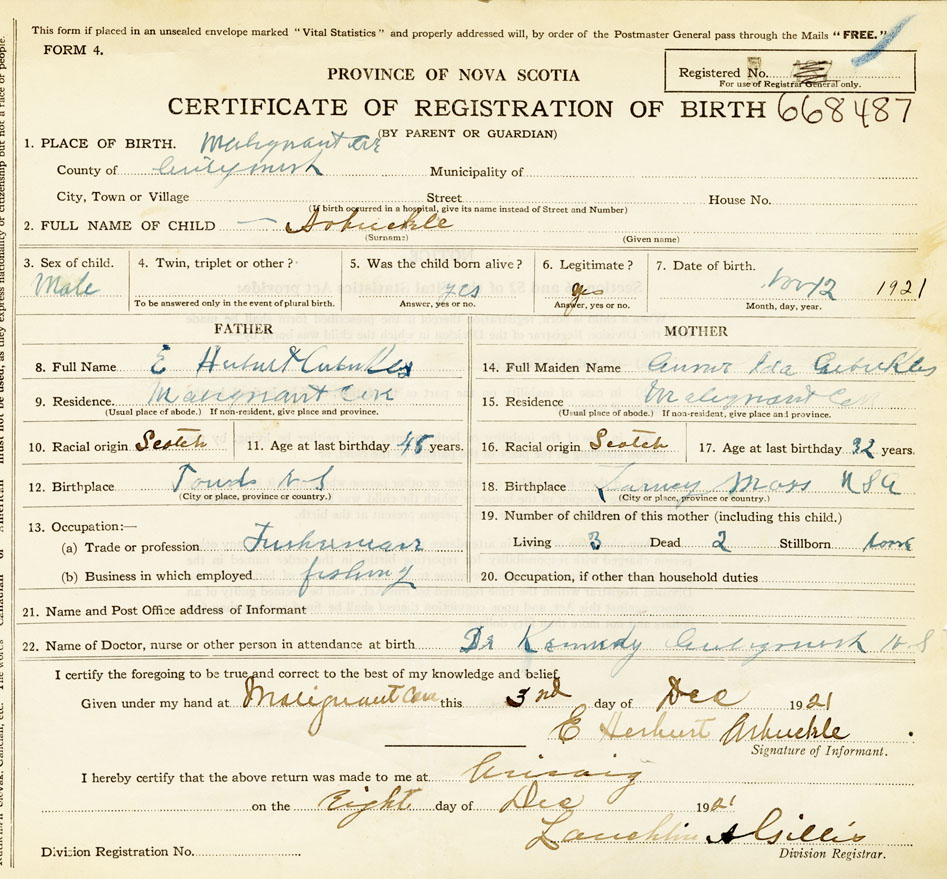 This form if placed in an unsealed envelope marked "Vital Statistics" and properly addressed will, by order of the Postmaster General pass through the Mails "FREE."
FORM 4.
Registered No.
For use of Registrar General only.
PROVINCE OF NOVA SCOTIA
CERTIFICATE OF REGISTRATION OF BIRTH 668487
(BY PARENT OR GUARDIAN)
1. PLACE OF BIRTH. Malignant Cove
County of Antigonish Municipality of
City, Town or Village Street House No.
(If birth occurred in a hospital, give its name instead of Street and Number)
2. FULL NAME OF CHILD — Arbuckle
(Surname) (Given name)
3. Sex of child. 4. Twin, triplet or other? 5. Was the child born alive? 6. Legitimate? 7. Date of birth.
Male yes yes Nov 12 1921
To be answered only in the event of plural birth. Answer, yes or no. Answer, yes or no. Month, day, year.
FATHER
8. Full Name E Herbert Arbuckles
9. Residence. Malignant Cove
(Usual place of abode.) If non-resident, give place and province.
10. Racial origin Scotch 11. Age at last birthday 45 years.
12. Birthplace N S
(City or place, province or country.)
13. Occupation:—
(a) Trade or profession Fisherman
(b) Business in which employed fishing
MOTHER
14. Full Maiden Name Ida Arbuckles
15. Residence Malignant Cove
(Usual place of abode.) If non-resident, give place and province.
16. Racial origin Scotch 17. Age at last birthday 32 years.
18. Birthplace Mass U S A
(City or place, province or country.)
19. Number of children of this mother (including this child.)
Living 3 Dead 2 Stillborn none
20. Occupation, if other than household duties
21. Name and Post Office address of Informant
22. Name of Doctor, nurse or other person in attendance at birth Dr Kennedy Antigonish N S
I certify the foregoing to be true and correct to the best of my knowledge and belief.
Given under my hand at Malignant Cove this 3nd day of Dec 1921
E Herbert Arbuckle
Signature of Informant.
I hereby certify that the above return was made to me at Arisaig
on the Eight day of Dec 1921
Lauchlin A Gillis
Division Registrar.
Division Registration No.